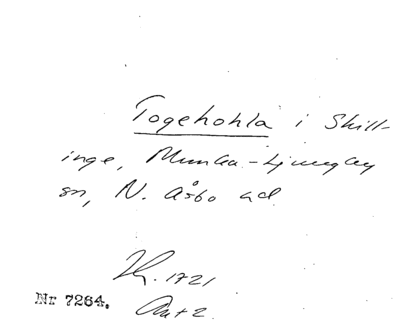 Togehohla i Skill-
inge, Munka-Ljungby
sn, N. Åsbo hd
1721
Nr 7264.